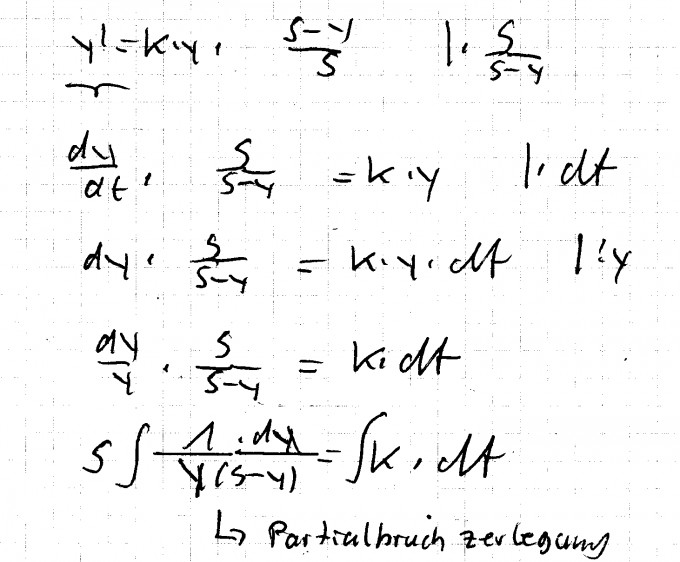 y' = k·y· (S-y)/S |· S/(S-y)
dy/dt · S/(S-y) = k·y |· dt
dy · S/(S-y) = k·y·dt |:y
dy/y · S/(S-y) = k·dt
S ∫ 1·dy/(y(S-y)) = ∫k·dt
↳ Partialbruch zerlegung